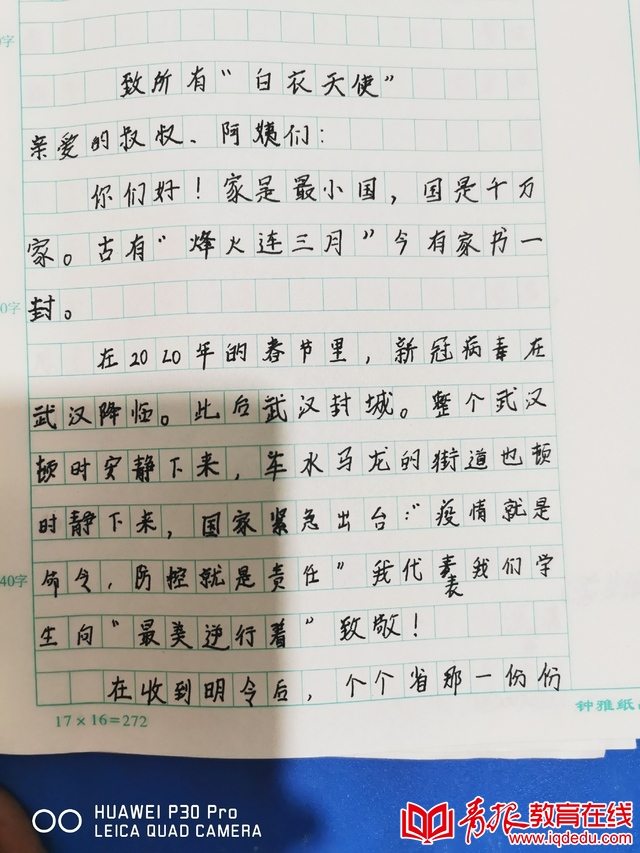 致所有“白衣天使”
亲爱的叔叔、阿姨们：
你们好！家是最小国，国是千万
家。古有“烽火连三月”今有家书一
封。
0字
在2020年的春节里，新冠病毒在
武汉降临。此后武汉封城。整个武汉
顿时安静下来，车水马龙的街道也顿
时静下来，国家紧急出台：“疫情就是
40字
命令，防控就是责任”我代表我们学
生向“最美逆行着”致敬！
在收到明令后，个个省那一份份
17×16=272
钟雅纸
HUAWEI P30 Pro
LEICA QUAD CAMERA
青报教育在线
www.iqdedu.com